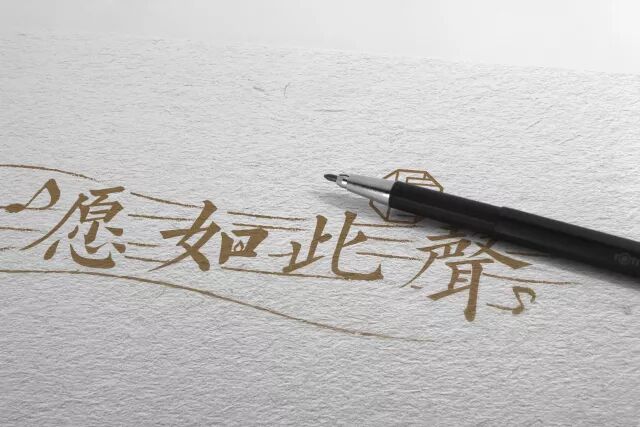 愿如此聲